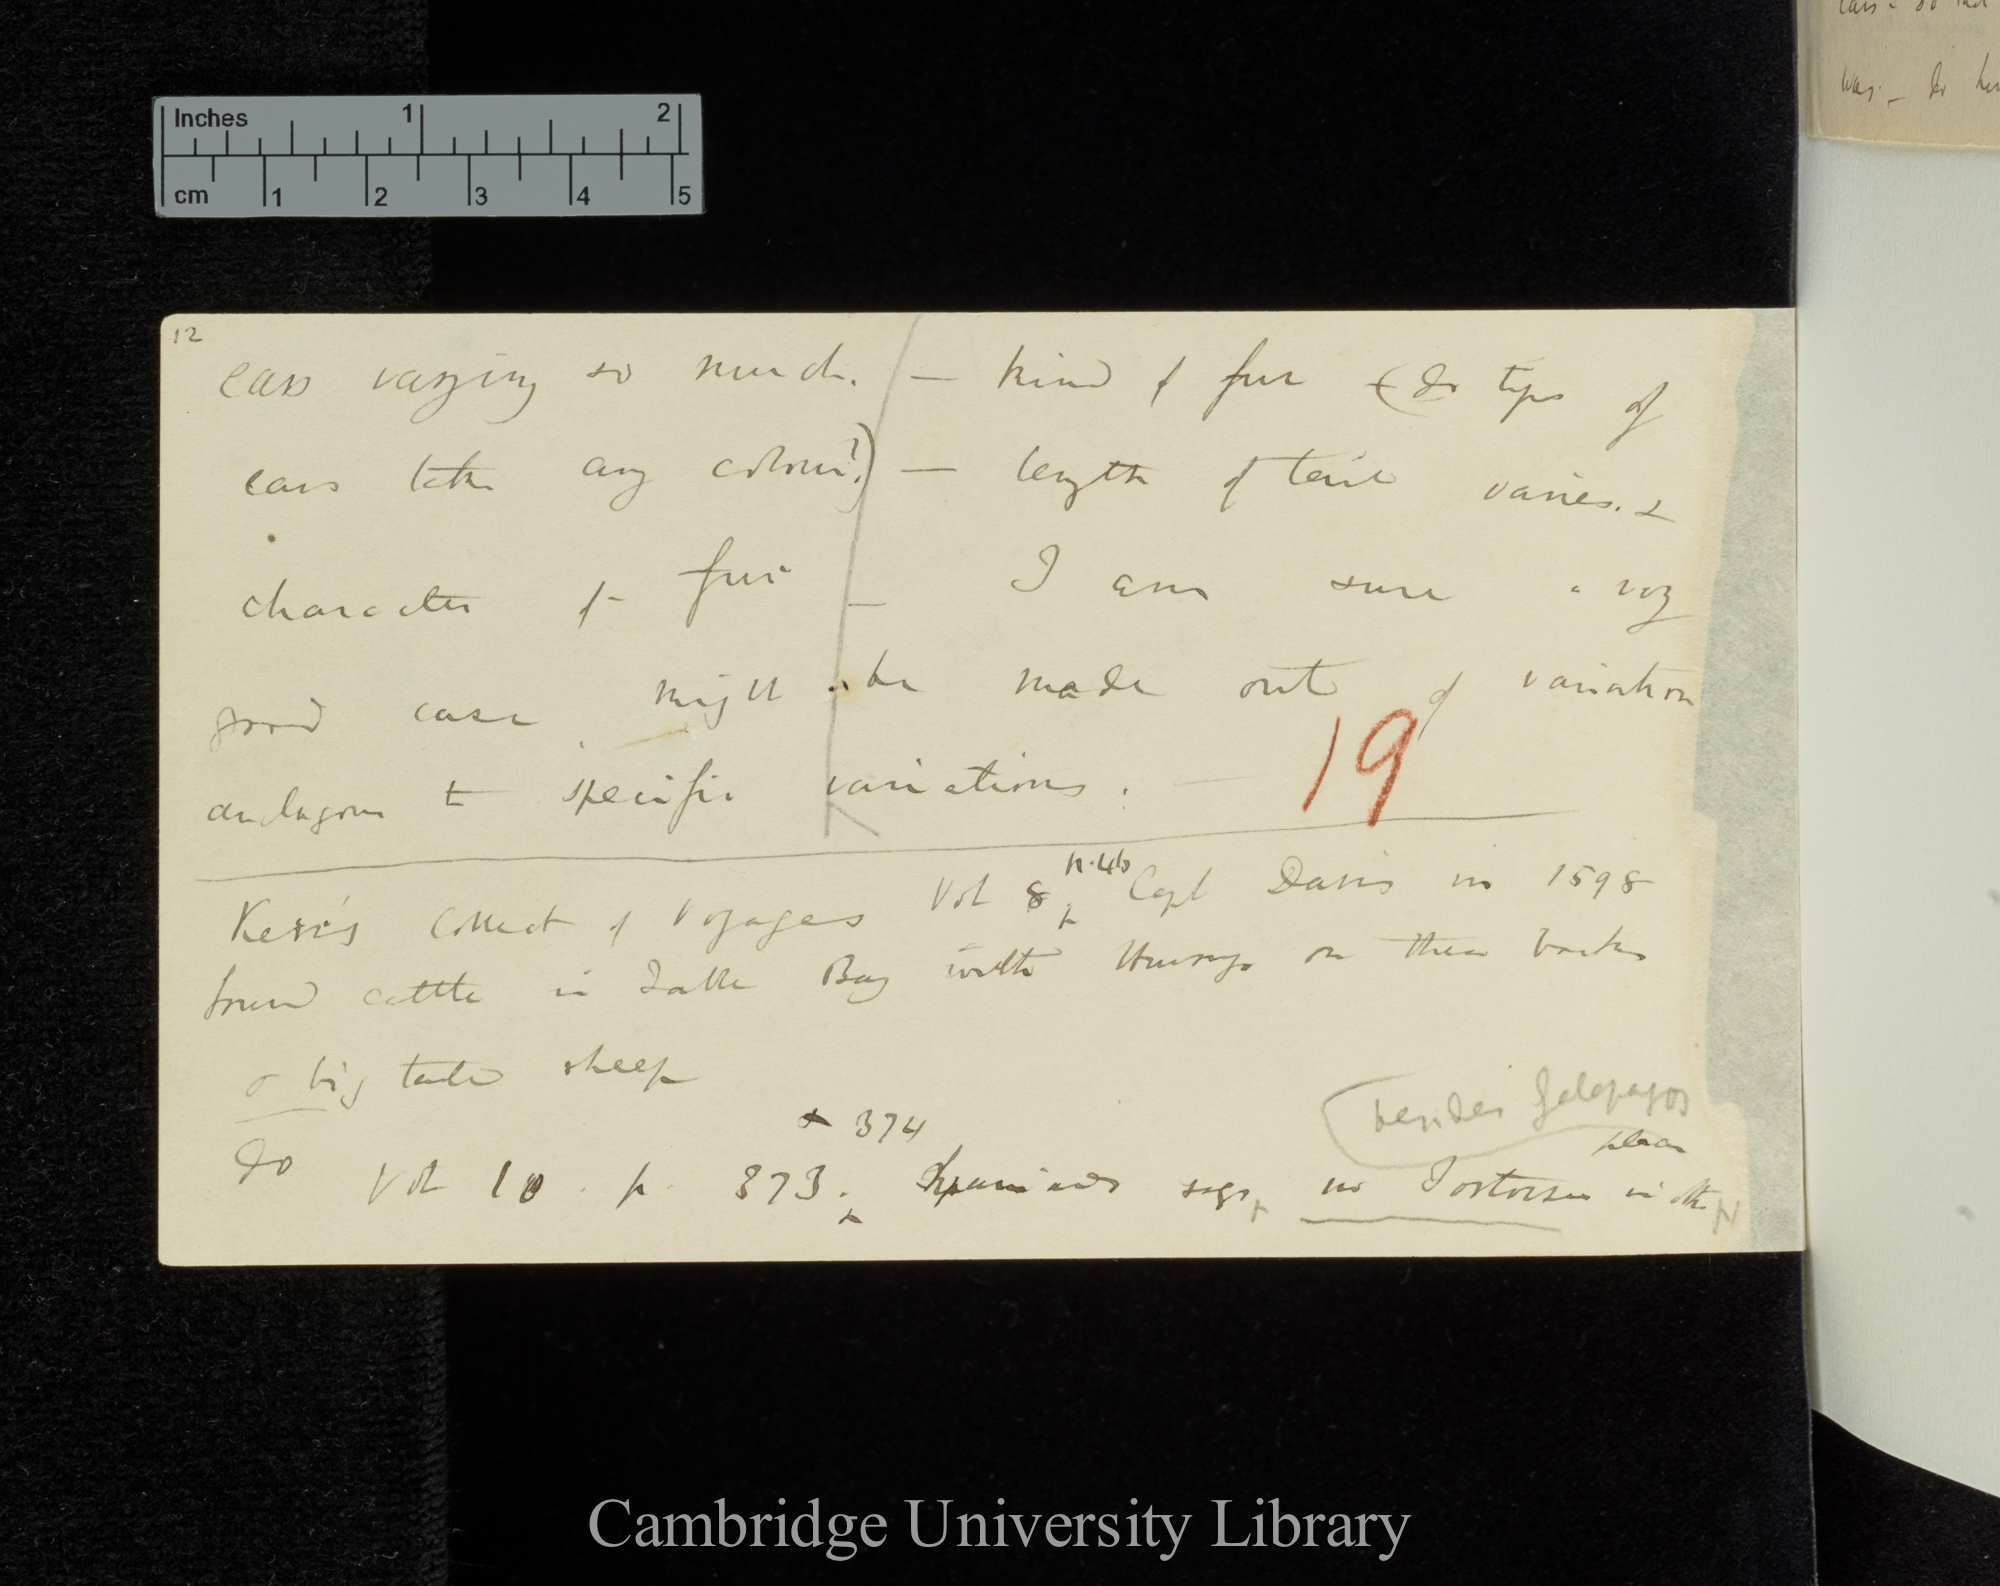 Inches 1 2
cm 1 2 3 4 5
12
ears varying so much. — kind of fur (do tips of
ears take any colour?) — length of tail varies. &
character of fur — I am sure a very
good case might be made out of variation
analogous to specific variations. —
19
Kerr's Collect of Voyages Vol 8, p. 46 Capt Davis in 1598
found cattle in Table Bay with Humps on their backs
& big tailed sheep
besides Galapagos
& 374
do Vol 10. p. 373. Spaniards say, no Tortoises in other places
Cambridge University Library